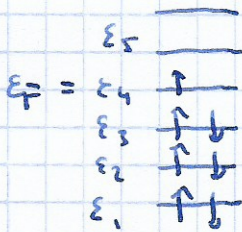 ε₅
ε_F = ε₄ ↑
ε₃ ↑ ↓
ε₂ ↑ ↓
ε₁ ↑ ↓